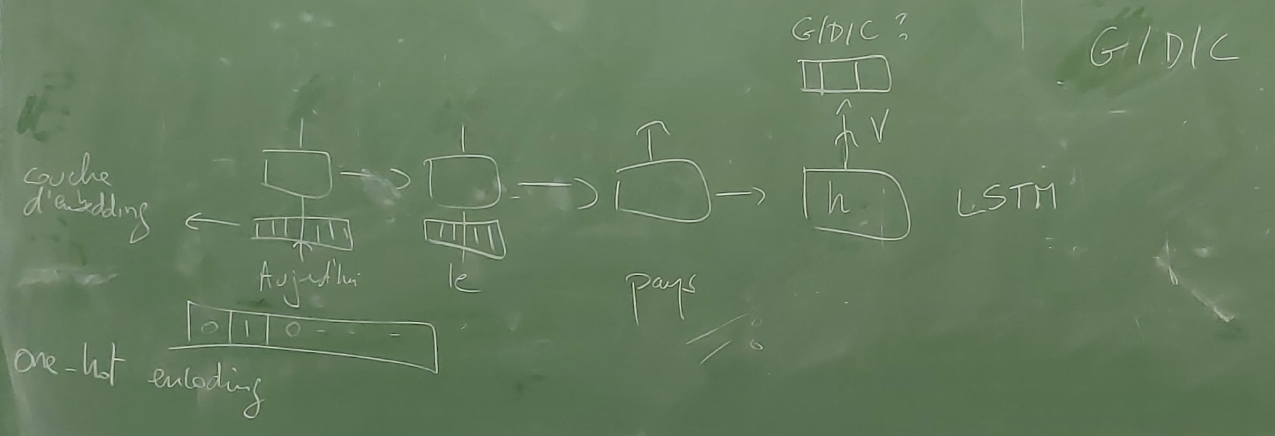 G/D/C ?
G/D/C
V
couche
d'embedding
h
LSTM
Aujourd'hui
le
pays
0 1 0 - - -
one-hot encoding